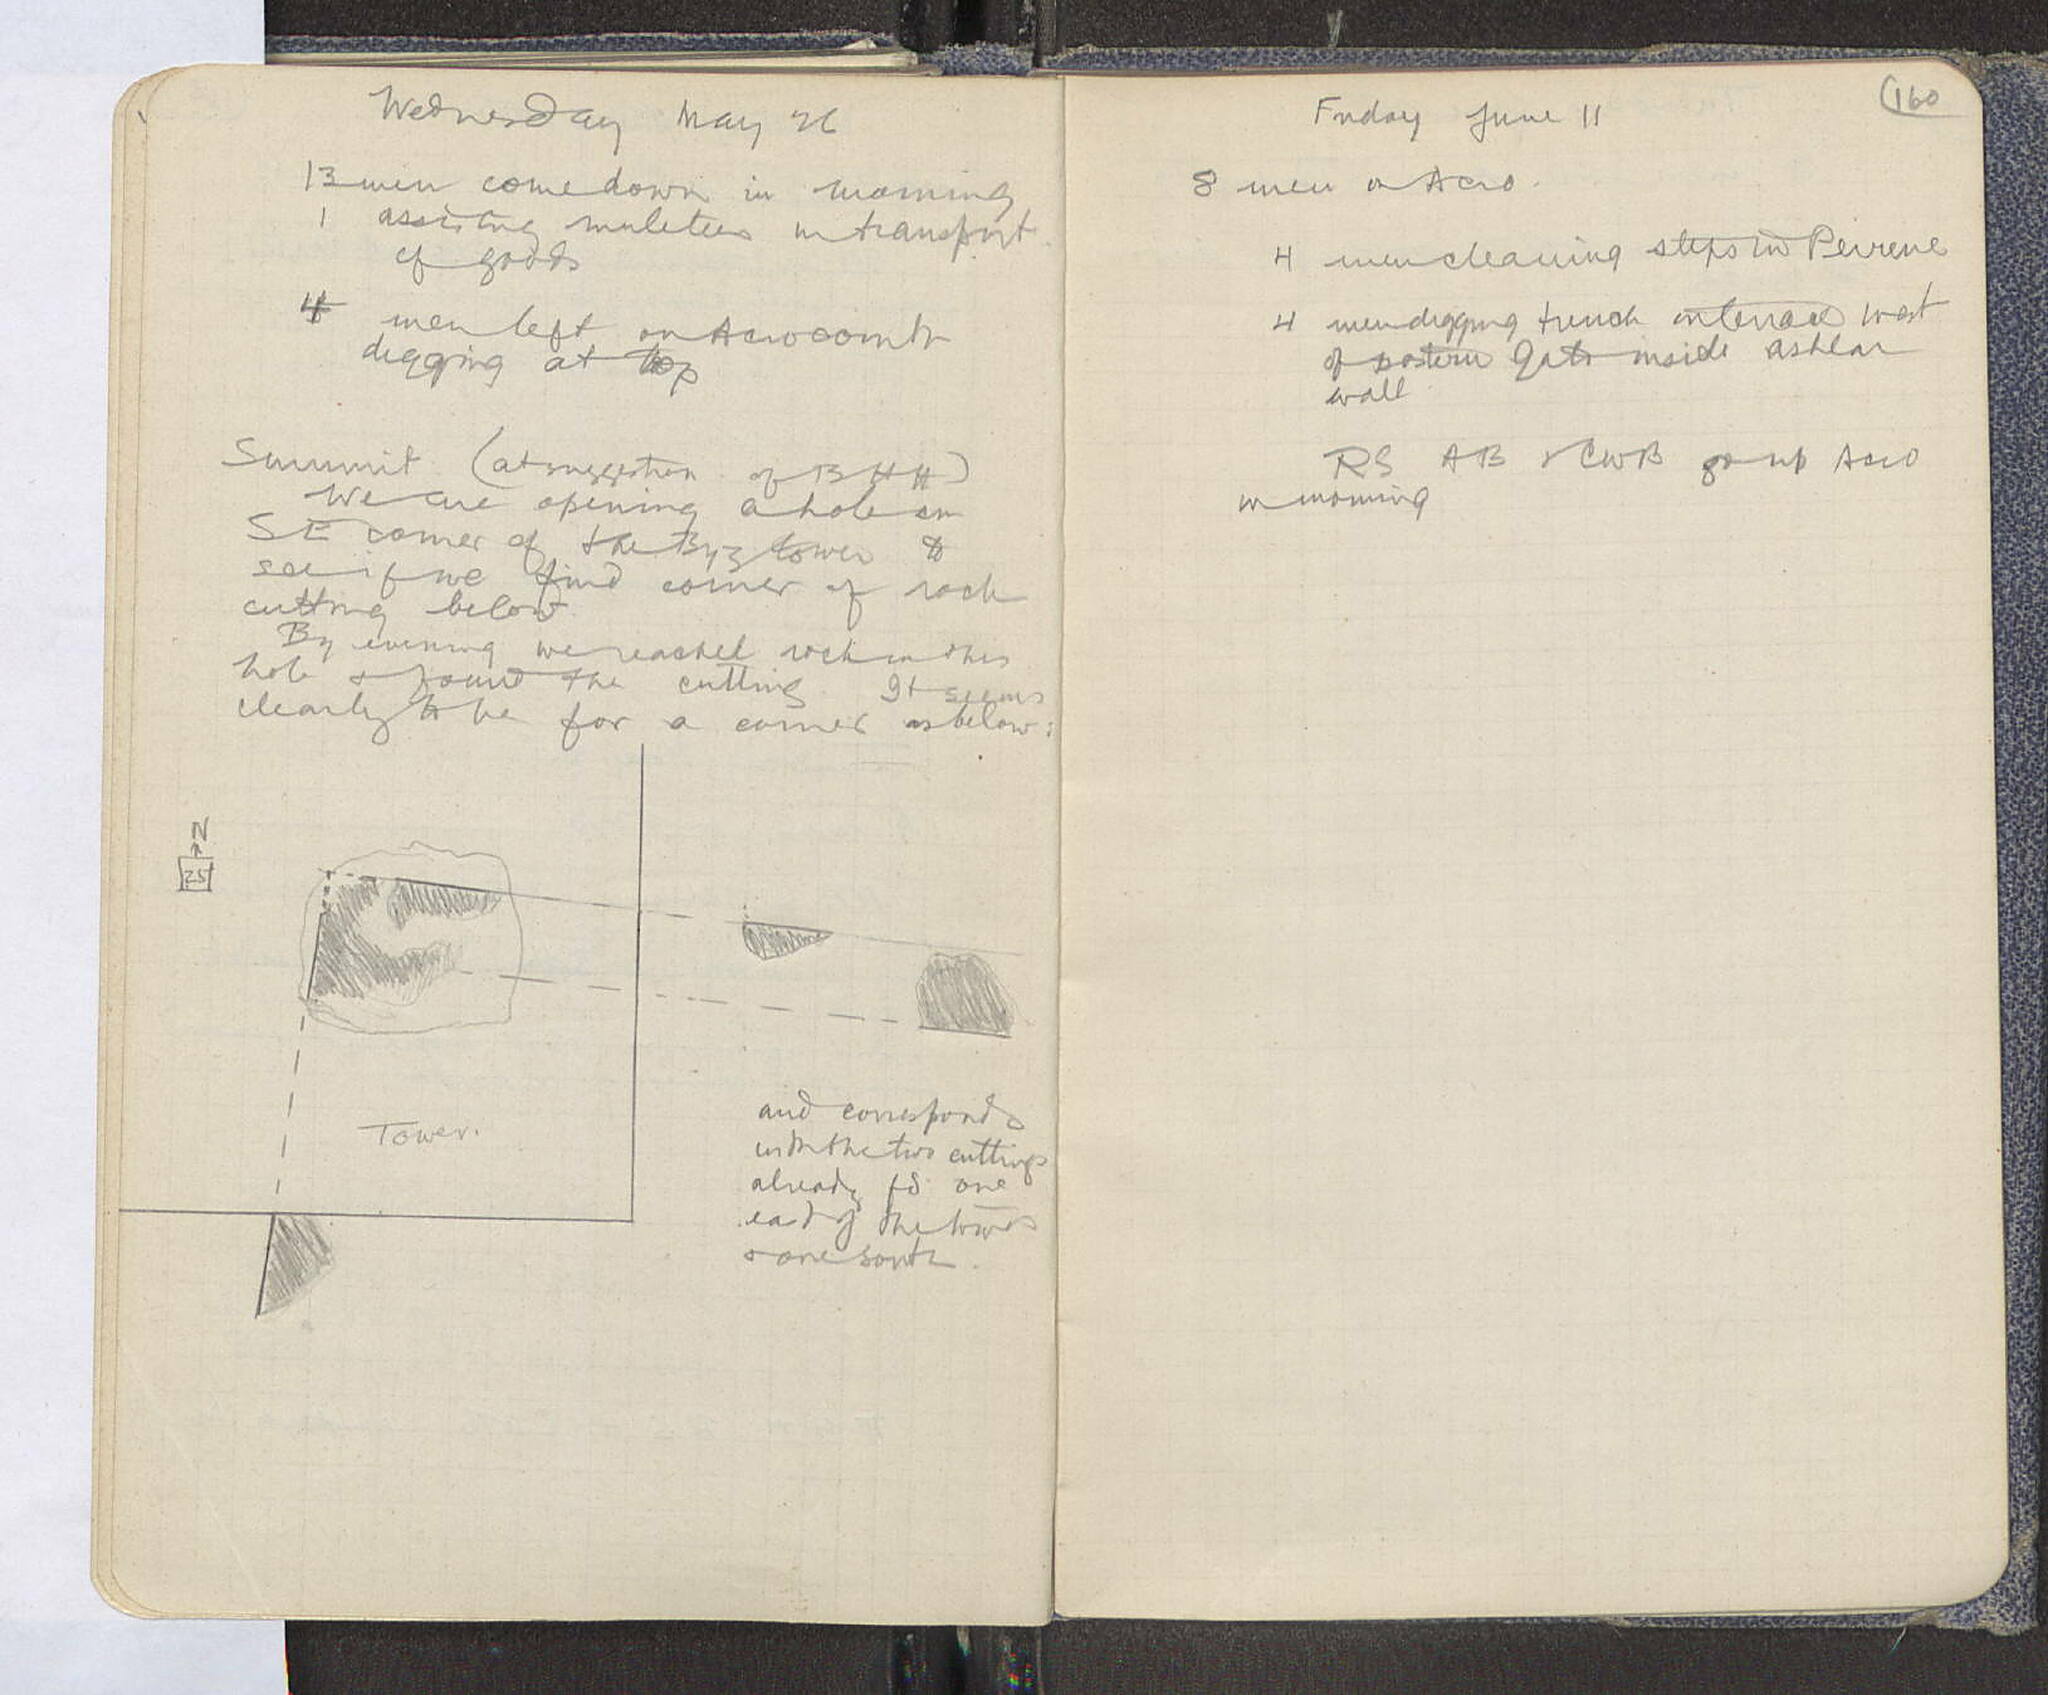 Wednesday May 26
13 men come down in morning
1 assisting muleteers in transport
of goods
4 men left on Acrocorinth
digging at top
Summit (at suggestion of BHH)
We are opening a hole in
SE corner of the Byz tower to
see if we find corner of rock
cutting below.
By evening we reached rock in this
hole & found the cutting. It seems
clearly to be for a corner as below:
N
25
Tower.
and corresponds
with the two cuttings
already fd. one
east of the tower
& one south.
160
Friday June 11
8 men on Acro.
4 men cleaning steps in Peirene
4 men digging trench on terrace west
of postern gate inside ashlar
wall
RS AB & CWB go up Acro
in morning